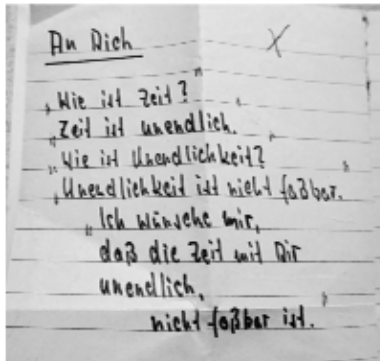 An Dich X
„Wie ist Zeit?"
„Zeit ist unendlich."
„Wie ist Unendlichkeit?
„Unendlichkeit ist nicht faßbar."
„Ich wünsche mir,
daß die Zeit mit Dir
unendlich,
nicht faßbar ist."